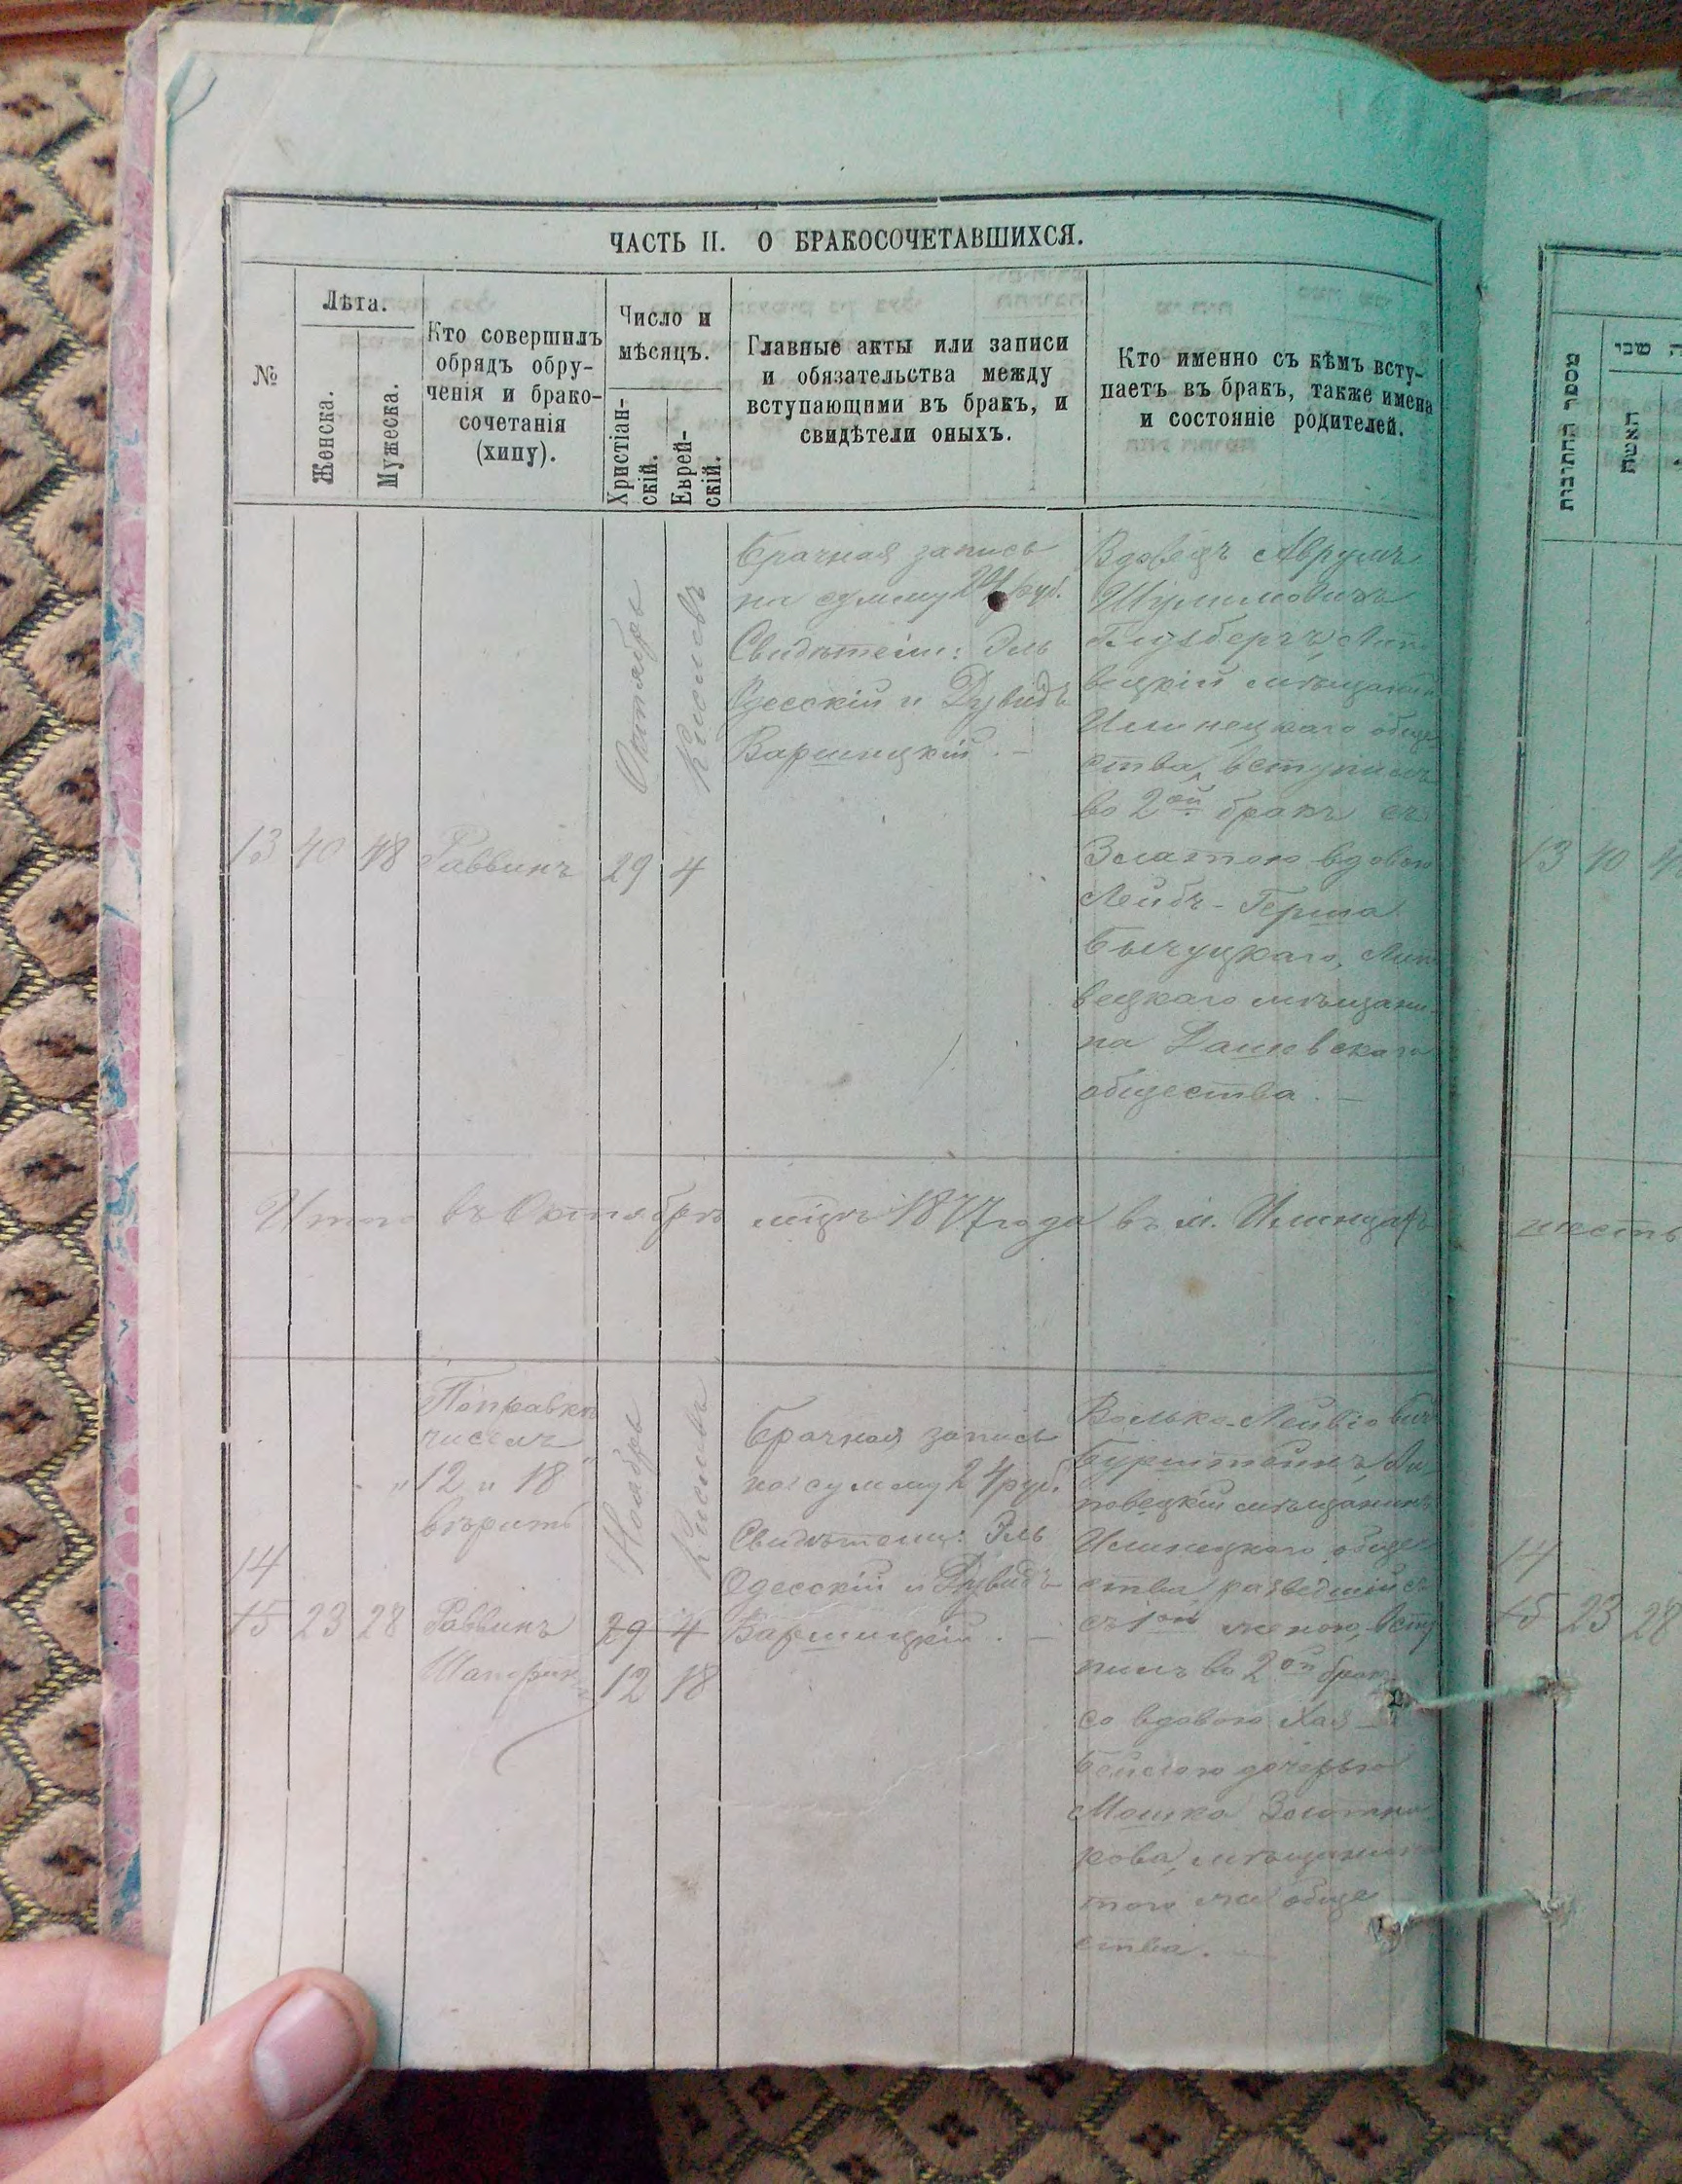 ЧАСТЬ II. О БРАКОСОЧЕТАВШИХСЯ.
№
Лѣта.
Женска.
Мужеска.
Кто совершилъ
обрядъ обру-
ченія и брако-
сочетанія
(хипу).
Число и
мѣсяцъ.
Христіан-
скій.
Еврей-
скій.
Главные акты или записи
и обязательства между
вступающими въ бракъ, и
свидѣтели оныхъ.
Кто именно съ кѣмъ всту-
паетъ въ бракъ, также имена
и состояніе родителей.
13
40
48
Раввинъ
Октябрь
29
Кислевъ
4
Брачная запись
на сумму 24 руб.
Свидѣтели: Эль
Одесскій и Дувидъ
Варшицкій. —
Вдовецъ Аврумъ
Шулимовичъ
вецкій мѣщанинъ
Илинецкаго обще-
ства, вступилъ
во 2ой бракъ съ
Златою вдовою
Лейбъ-Герша
вецкаго мѣщани-
на Дашевскаго
общества. —
Итого въ Октябрѣ мцѣ 1877 года въ м. Илинцахъ
шесть
14
15
23
28
Поправка
числъ
"12 и 18"
вѣрить
Раввинъ
Ноябрь
29
12
Кислевъ
4
18
Брачная запись
на сумму 24 руб.
Свидѣтели: Эль
Одесскій и Дувидъ
Варшицкій. —
Волько-Лейвіовичъ
Бурштейнъ Ли-
повецкій мѣщанинъ
Илинецкаго обще
ства, разведшійся
съ 1ой женою, всту
пилъ во 2ой бракъ
со вдовою Хая-
Бейлою дочерью
Мошка
мѣщанина
того же обще
ства. —
מספר החתונות
האשה
13
40
14
15
23
28